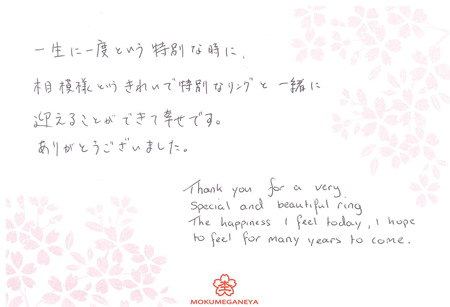 一生に一度という特別な時に、
相模様というきれいで特別なリングと一緒に
迎えることができて幸せです。
ありがとうございました。
Thank you for a very
special and beautiful ring
The happiness I feel today, I hope
to feel for many years to come.
MOKUMEGANEYA